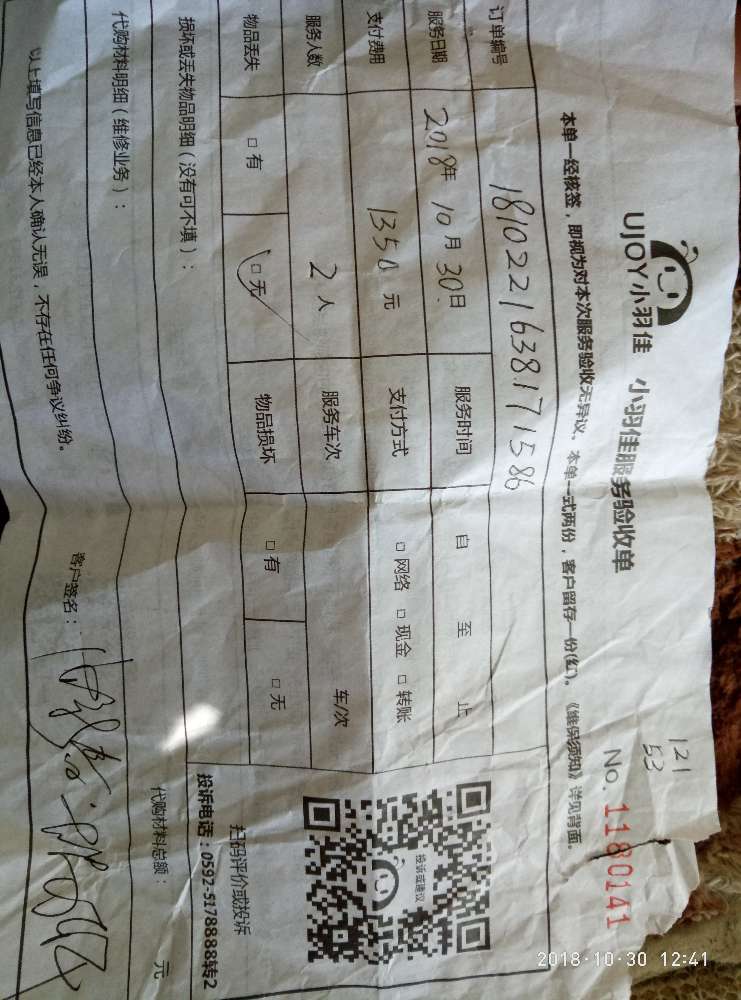 121
53
UJOY小羽佳 小羽佳服务验收单
No. 1180141
本单一经核签，即视为对本次服务验收无异议、本单一式两份，客户留存一份(红)。《维保须知》详见背面。
订单编号 1810221638171586
服务日期 2018年 10月 30日 服务时间 自 至 止
支付费用 1350 元 支付方式 □ 网络 □ 现金 □ 转账
服务人数 2 人 服务车次 车/次
物品丢失 □ 有 □ 无 物品损坏 □ 有 □ 无
投诉或建议
扫码评价或投诉
投诉电话：0592-5178888转2
损坏或丢失物品明细（没有可不填）：
代购材料明细（维修业务）： 代购材料总额： 元
以上填写信息已经本人确认无误，不存在任何争议纠纷。 客户签名：
2018-10-30 12:41